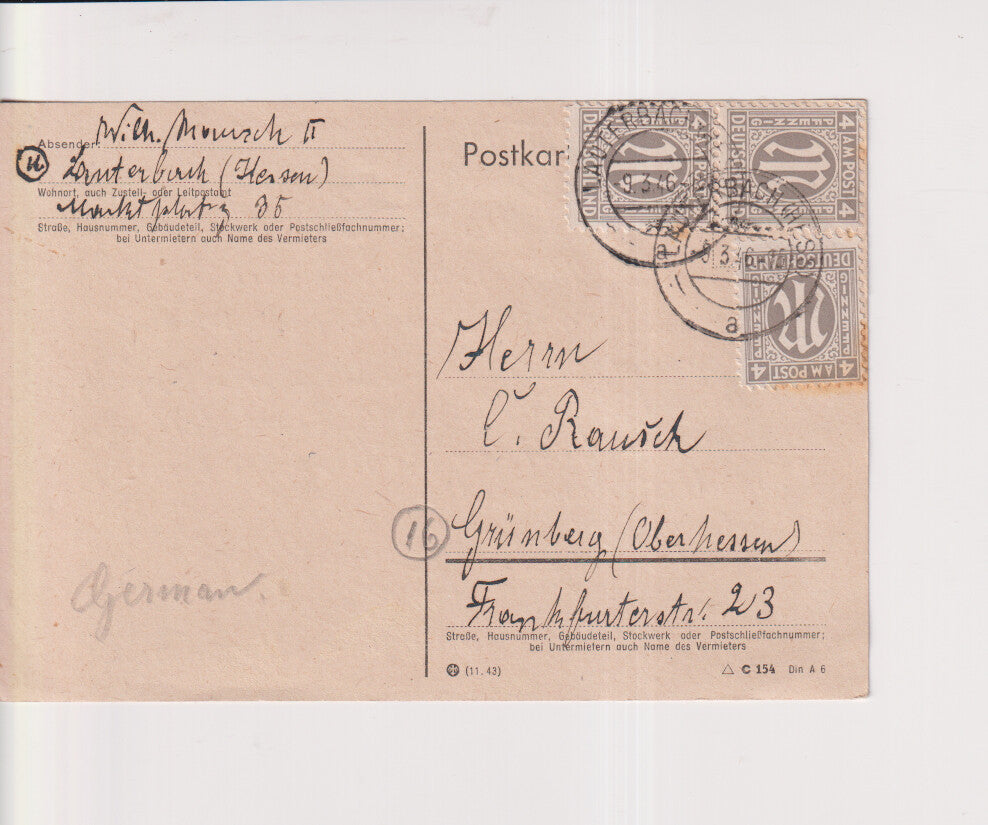 Wilh. Mausch II
Absender:
16
Lauterbach (Hessen)
Wohnort, auch Zustell- oder Leitpostamt
Marktplatz 35
Straße, Hausnummer, Gebäudeteil, Stockwerk oder Postschließfachnummer;
bei Untermietern auch Name des Vermieters
German.
Postkar
4 AM POST 4
PFENNIG
DEUTSCHLAND
M
4 AM POST 4
PFENNIG
DEUTSCHLAND
M
4 AM POST 4
PFENNIG
DEUTSCHLAND
M
LAUTERBACH (HESS
9.3.46
a
LAUTERBACH (HESS
9.3.46
a
Herrn
C. Rausch
16
Grünberg (Oberhessen)
Frankfurterstr. 23
Straße, Hausnummer, Gebäudeteil, Stockwerk oder Postschließfachnummer;
bei Untermietern auch Name des Vermieters
(11. 43)
C 154 Din A 6